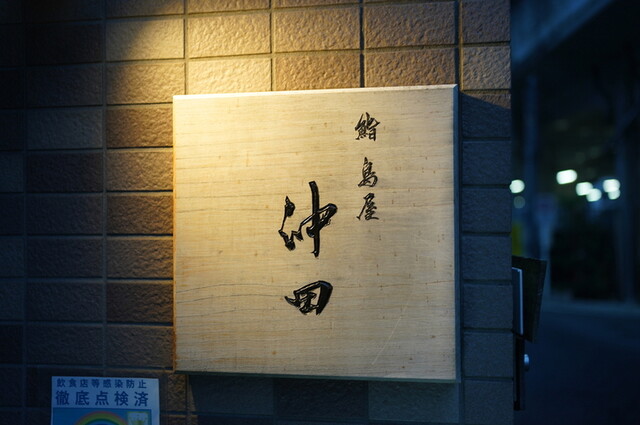 鮨 島屋
沖田
飲食店等感染防止
徹底点検済